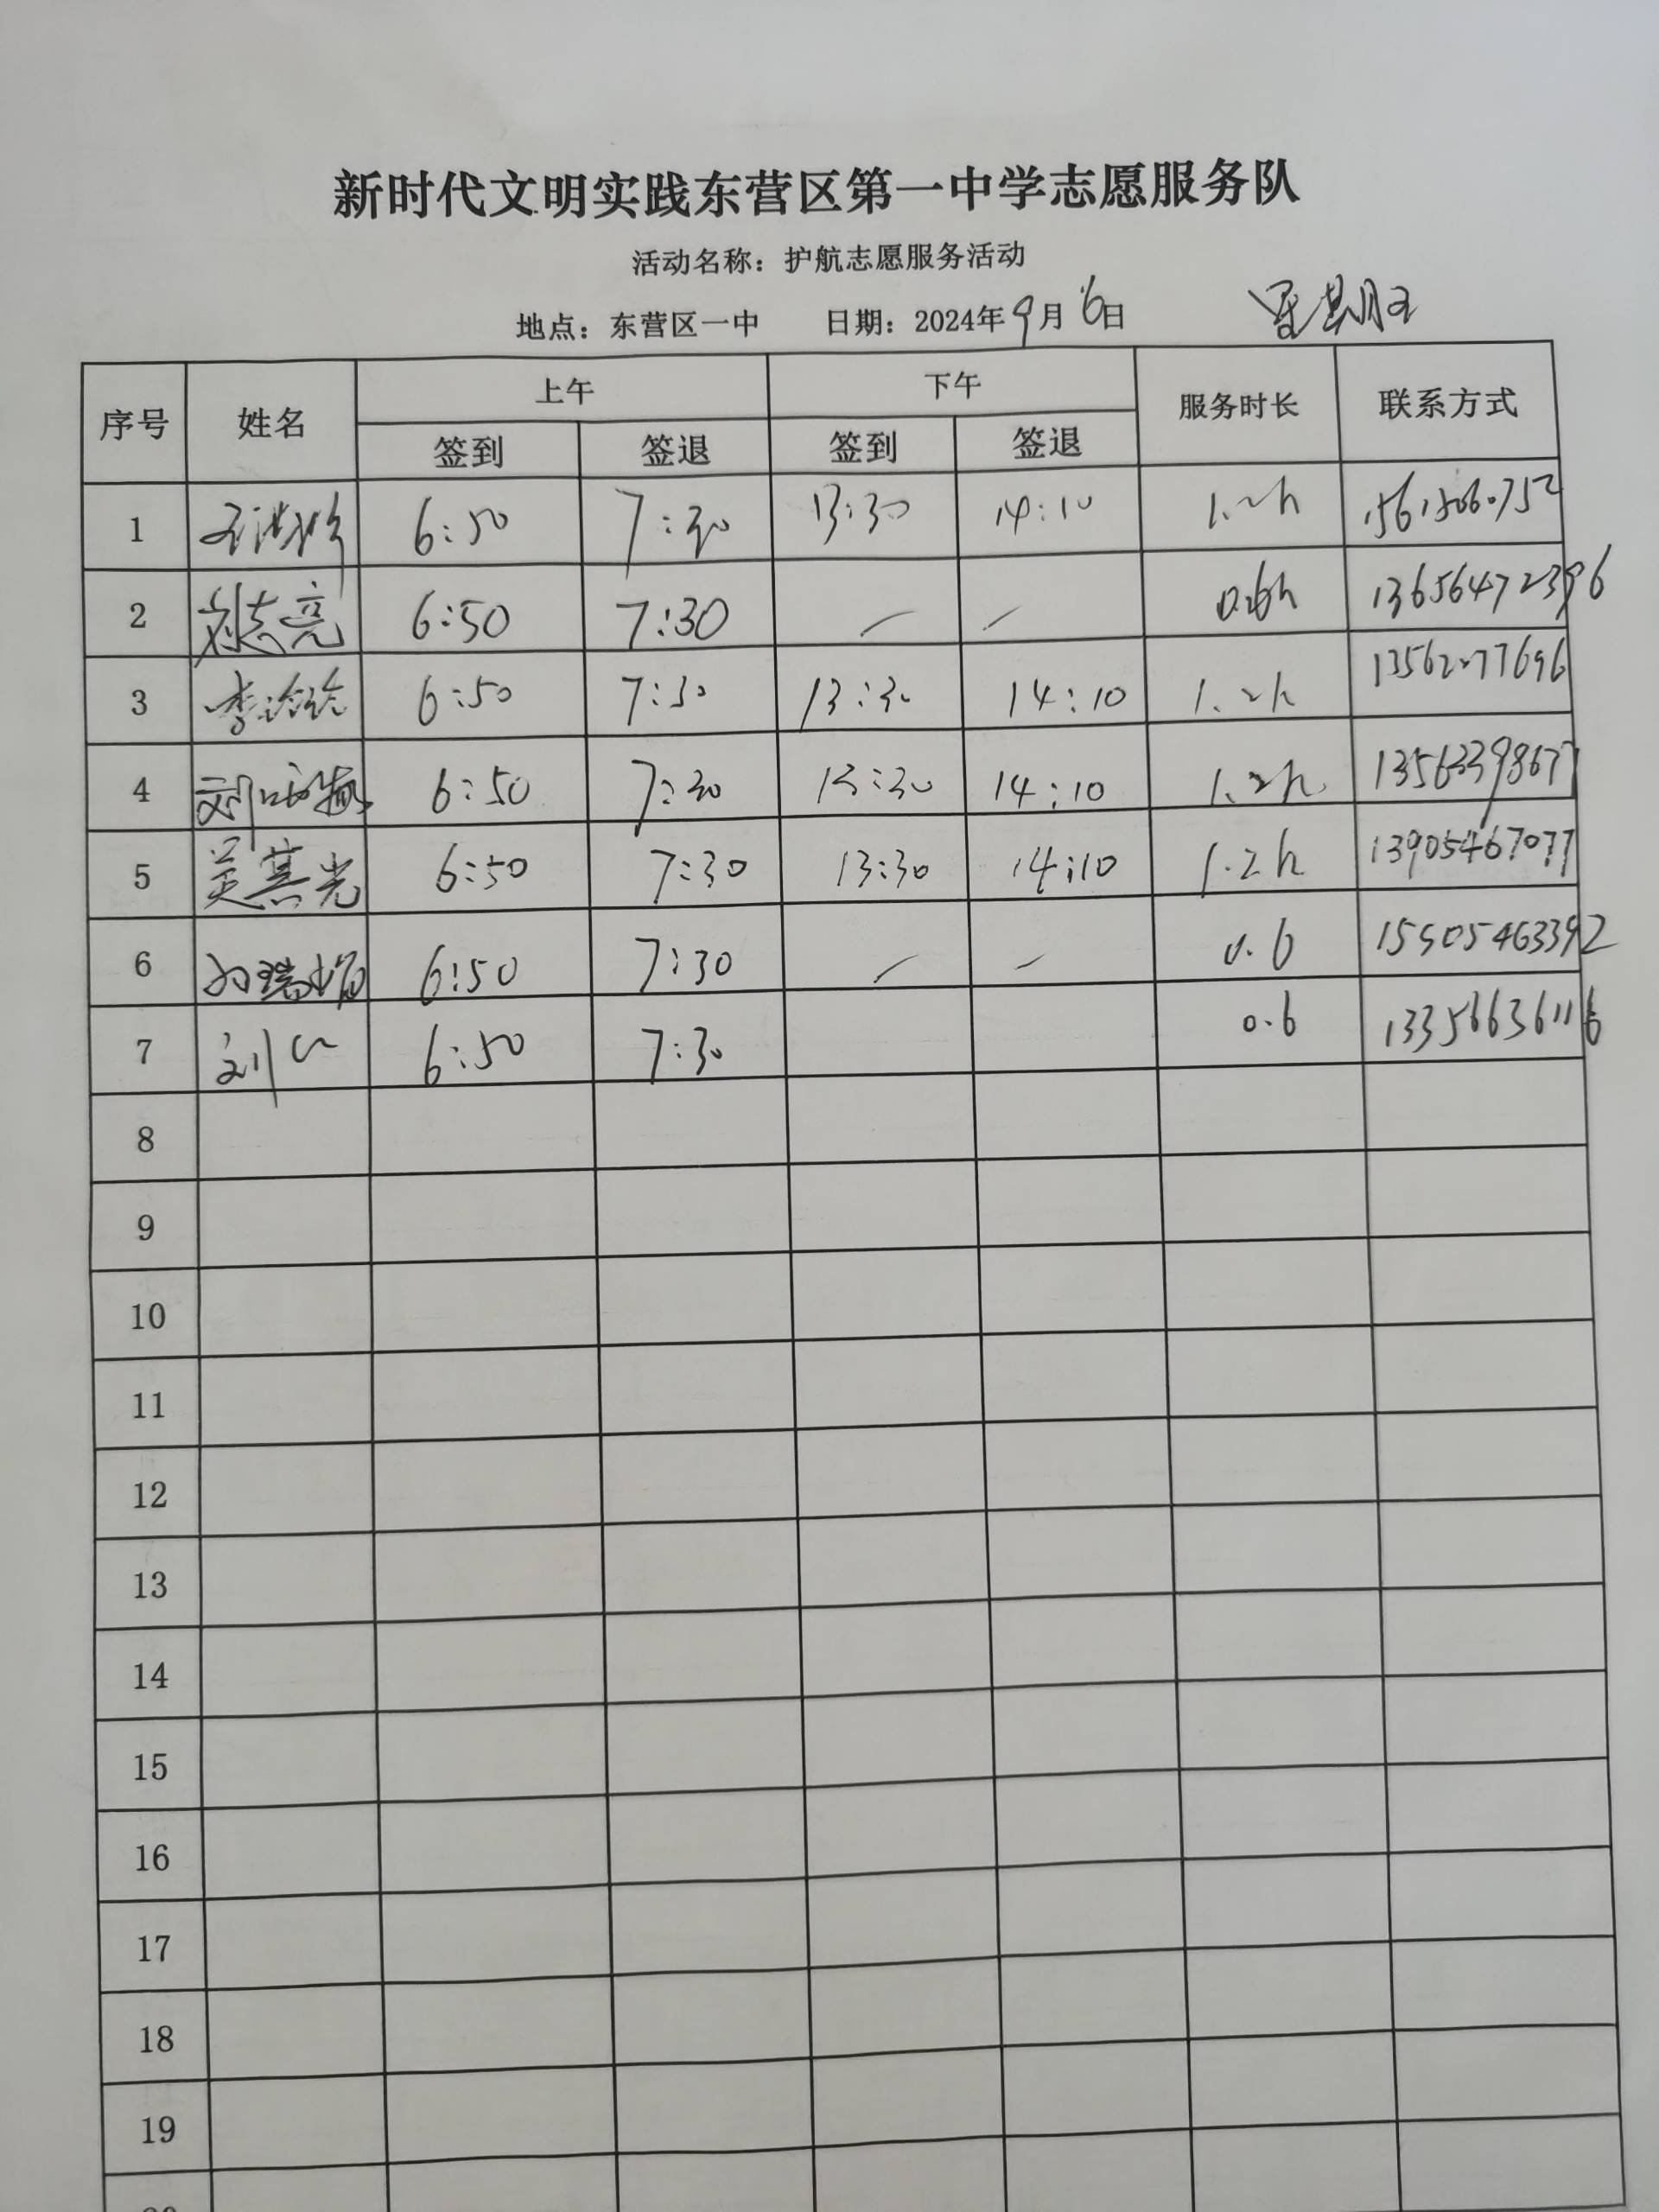 新时代文明实践东营区第一中学志愿服务队
活动名称：护航志愿服务活动
地点：东营区一中 日期：2024年9月6日 星期五
序号 姓名 上午 下午 服务时长 联系方式
签到 签退 签到 签退
1 6:50 7:30 13:30 14:10 1.2h
2 志亮 6:50 7:30 — — 0.6h 13656472396
3 李 6:50 7:30 13:30 14:10 1.2h 13562277696
4 刘 6:50 7:30 13:30 14:10 1.2h 13563398677
5 吴其光 6:50 7:30 13:30 14:10 1.2h 13905467077
6 瑞娟 6:50 7:30 — — 0.6 15905463392
7 刘 6:50 7:30 0.6 13356636116
8
9
10
11
12
13
14
15
16
17
18
19
20